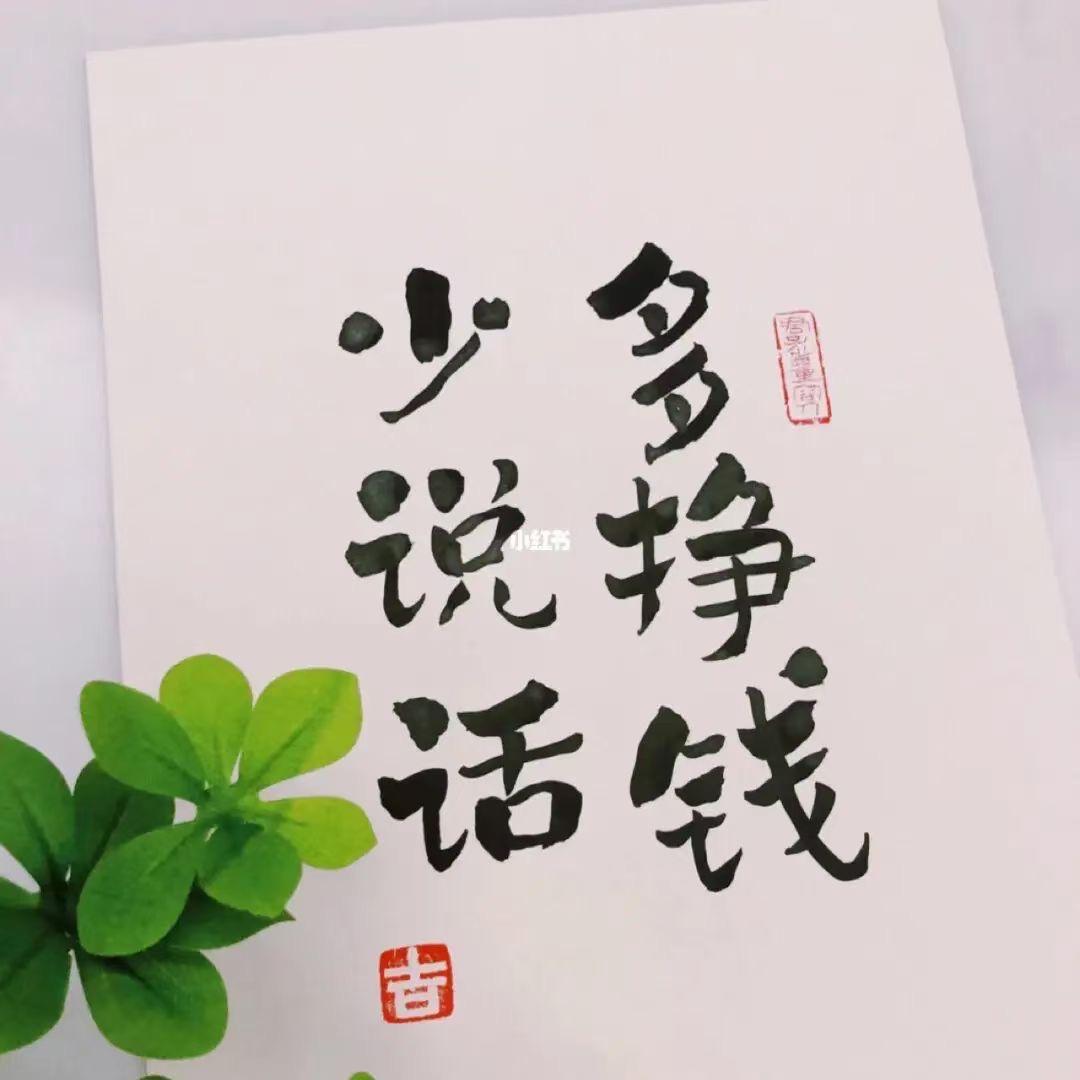 多挣钱
少说话
小红书
吉